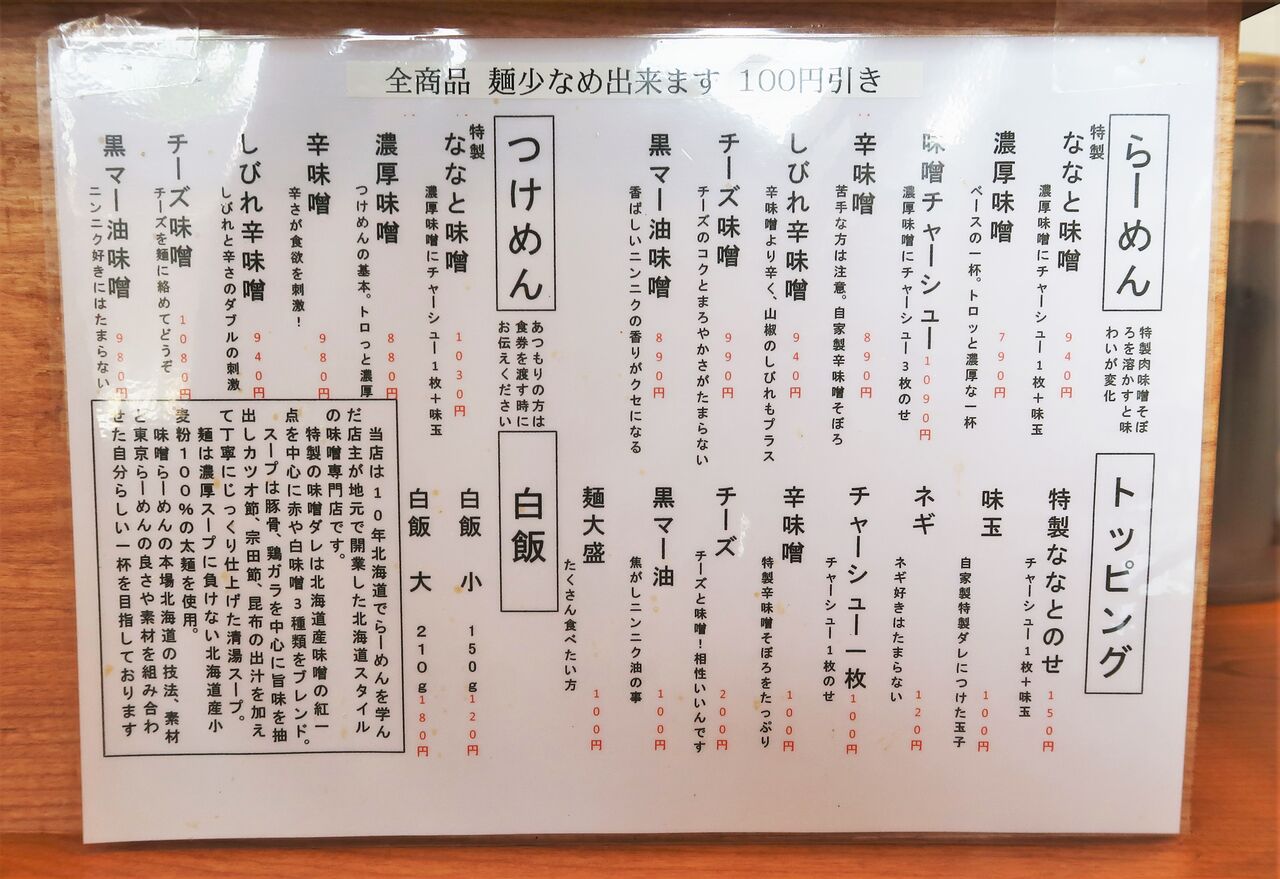 全商品 麺少なめ出来ます 100円引き
らーめん
特製肉味噌そぼ
ろを溶かすと味
わいが変化
特製
ななと味噌 940円
濃厚味噌にチャーシュー1枚+味玉
濃厚味噌 790円
ベースの一杯。トロッと濃厚な一杯
味噌チャーシュー 1090円
濃厚味噌にチャーシュー3枚のせ
辛味噌 890円
苦手な方は注意。自家製辛味噌そぼろ
しびれ辛味噌 940円
辛味噌より辛く、山椒のしびれもプラス
チーズ味噌 990円
チーズのコクとまろやかさがたまらない
黒マー油味噌 890円
香ばしいニンニクの香りがクセになる
つけめん
あつもりの方は
食券を渡す時に
お伝えください
特製
ななと味噌 1030円
濃厚味噌にチャーシュー1枚+味玉
濃厚味噌 880円
つけめんの基本。トロっと濃厚
辛味噌 980円
辛さが食欲を刺激！
しびれ辛味噌 940円
しびれと辛さのダブルの刺激
チーズ味噌 1080円
チーズを麺に絡めてどうぞ
黒マー油味噌 980円
ニンニク好きにはたまらない
トッピング
特製ななとのせ 150円
チャーシュー1枚+味玉
味玉 100円
自家製特製ダレにつけた玉子
ネギ 120円
ネギ好きはたまらない
チャーシュー一枚 100円
チャーシュー1枚のせ
辛味噌 100円
特製辛味噌そぼろをたっぷり
チーズ 200円
チーズと味噌！相性いいんです
黒マー油 100円
焦がしニンニク油の事
麺大盛 100円
たくさん食べたい方
白飯
白飯 小 150g 120円
白飯 大 210g 180円
当店は10年北海道でらーめんを学ん
だ店主が地元で開業した北海道スタイル
の味噌専門店です。
特製の味噌ダレは北海道産味噌の紅一
点を中心に赤や白味噌3種類をブレンド。
スープは豚骨、鶏ガラを中心に旨味を抽
出しカツオ節、宗田節、昆布の出汁を加え
て丁寧にじっくり仕上げた清湯スープ。
麺は濃厚スープに負けない北海道産小
麦粉100%の太麺を使用。
味噌らーめんの本場北海道の技法、素材
と東京らーめんの良さや素材を組み合わ
せた自分らしい一杯を目指しております